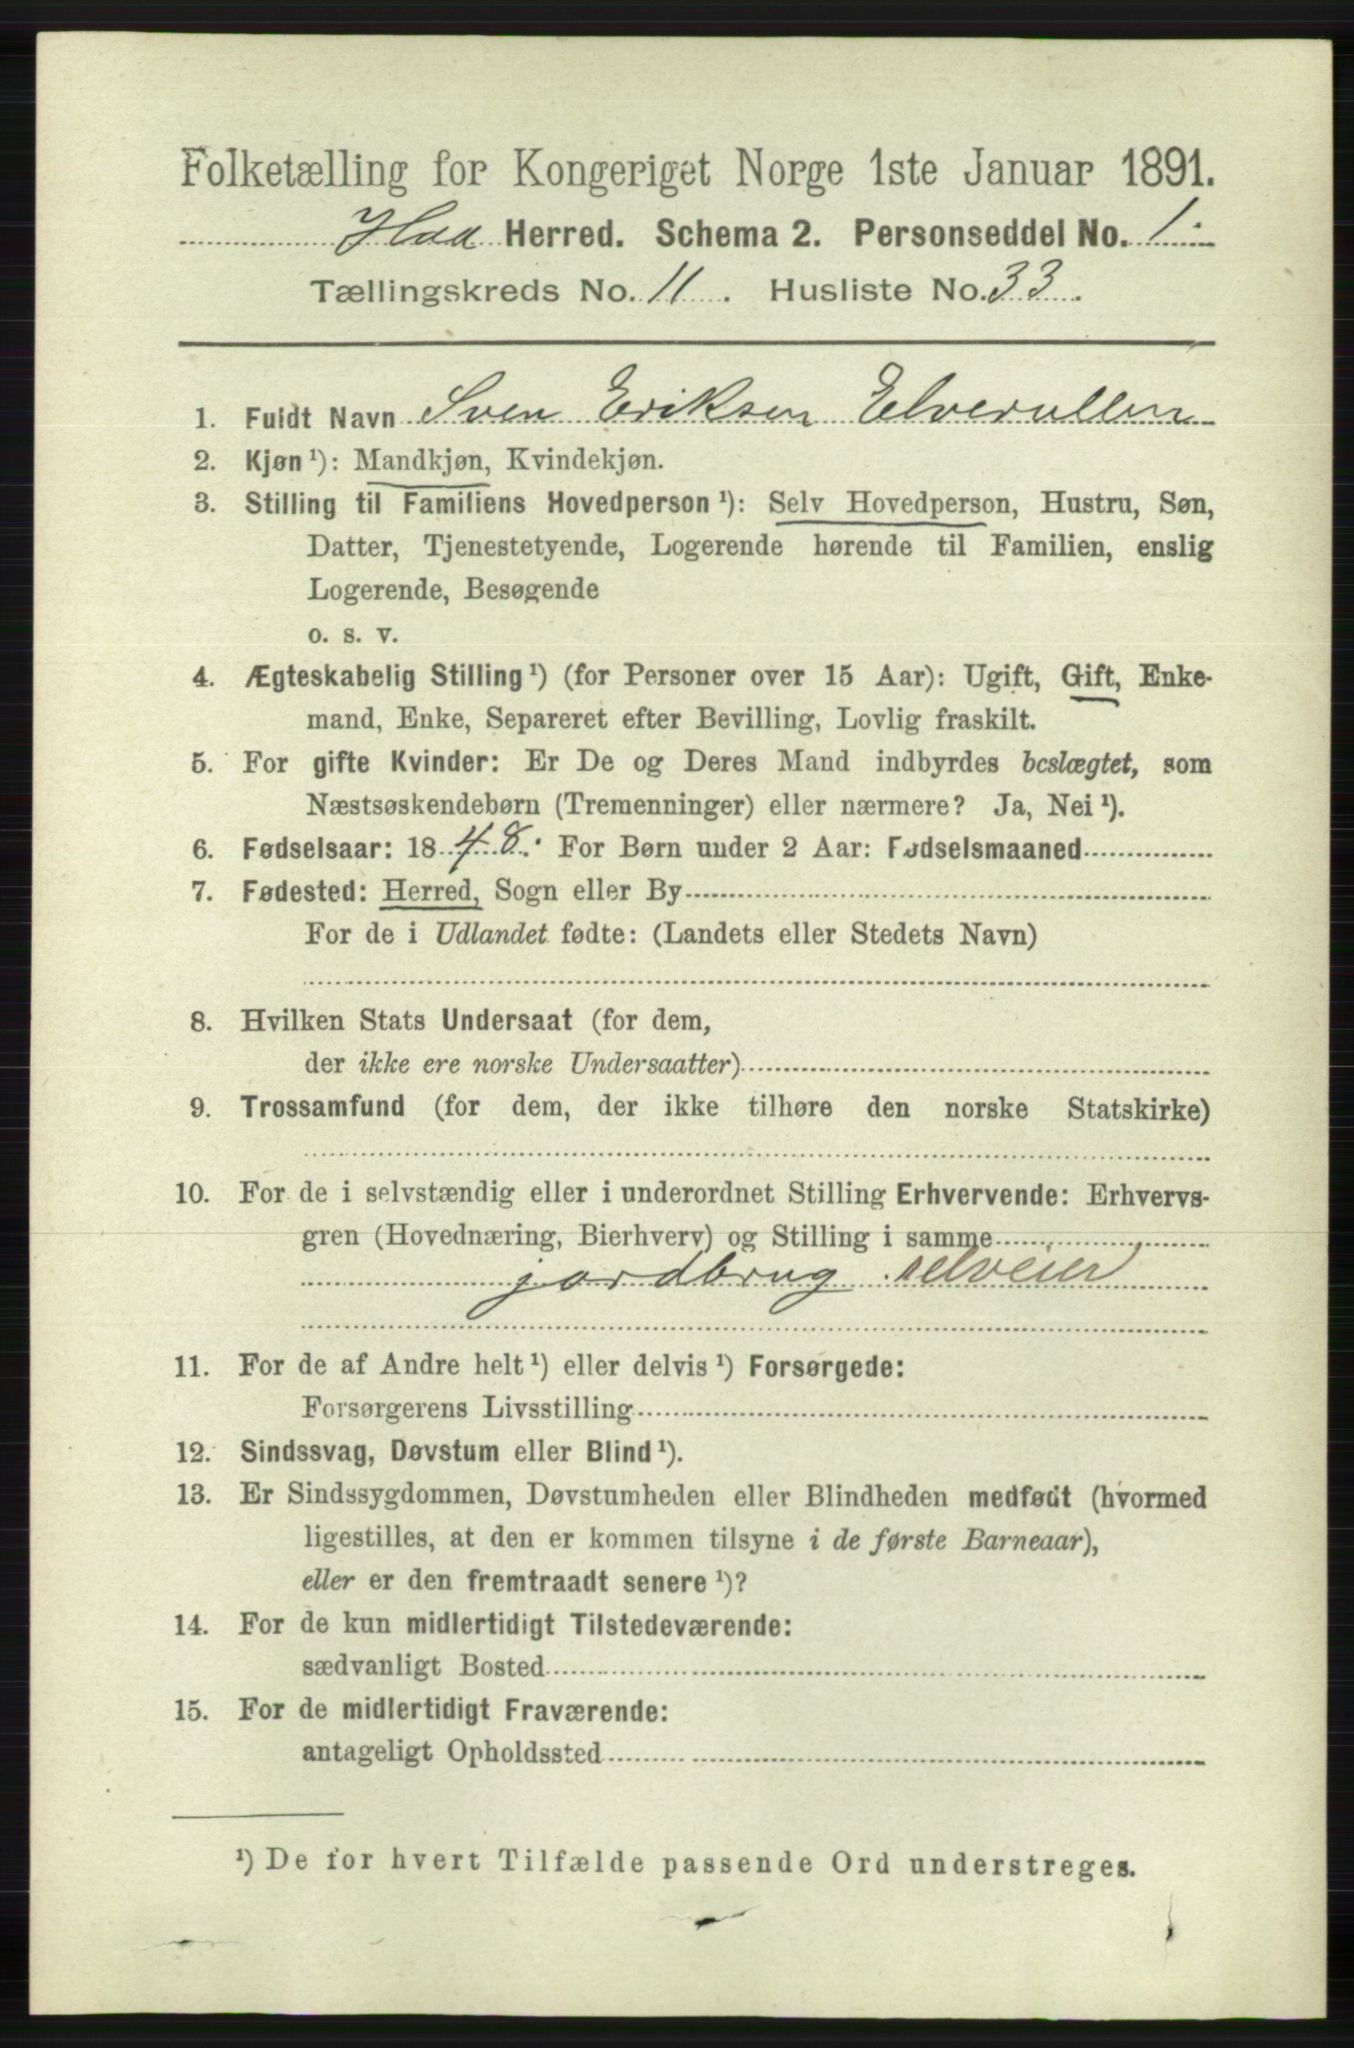 Folketælling for Kongeriget Norge 1ste Januar 1891.
Haa Herred. Schema 2. Personseddel No. 1.
Tællingskreds No. 11. Husliste No. 33.
1. Fuldt Navn Sven Eriksen
2. Kjøn ¹): Mandkjøn, Kvindekjøn.
3. Stilling til Familiens Hovedperson ¹): Selv Hovedperson, Hustru, Søn,
Datter, Tjenestetyende, Logerende hørende til Familien, enslig
Logerende, Besøgende
o. s. v.
4. Ægteskabelig Stilling ¹) (for Personer over 15 Aar): Ugift, Gift, Enke-
mand, Enke, Separeret efter Bevilling, Lovlig fraskilt.
5. For gifte Kvinder: Er De og Deres Mand indbyrdes beslægtet, som
Næstsøskendebørn (Tremenninger) eller nærmere? Ja, Nei ¹).
6. Fødselsaar: 1848. For Børn under 2 Aar: Fødselsmaaned
7. Fødested: Herred, Sogn eller By
For de i Udlandet fødte: (Landets eller Stedets Navn)
8. Hvilken Stats Undersaat (for dem,
der ikke ere norske Undersaatter)
9. Trossamfund (for dem, der ikke tilhøre den norske Statskirke)
10. For de i selvstændig eller i underordnet Stilling Erhvervende: Erhvervs-
gren (Hovednæring, Bierhverv) og Stilling i samme
jordbrug selveier
11. For de af Andre helt ¹) eller delvis ¹) Forsørgede:
Forsørgerens Livsstilling
12. Sindssvag, Døvstum eller Blind ¹).
13. Er Sindssygdommen, Døvstumheden eller Blindheden medfødt (hvormed
ligestilles, at den er kommen tilsyne i de første Barneaar),
eller er den fremtraadt senere ¹)?
14. For de kun midlertidigt Tilstedeværende:
sædvanligt Bosted
15. For de midlertidigt Fraværende:
antageligt Opholdssted
¹) De for hvert Tilfælde passende Ord understreges.